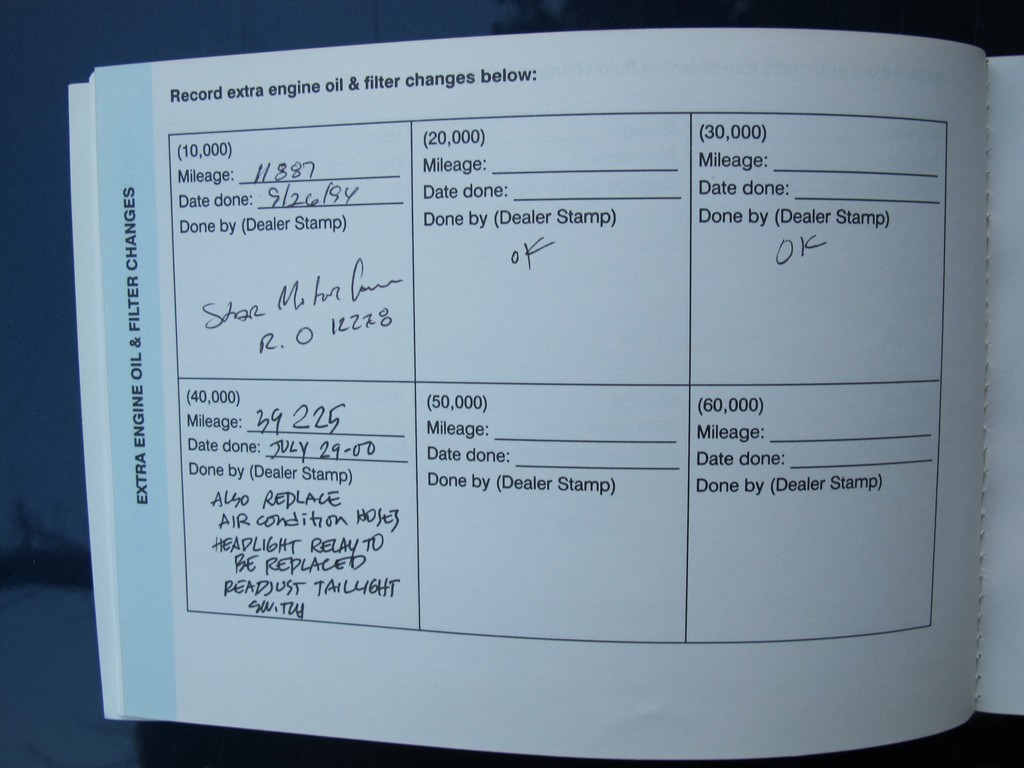 Record extra engine oil & filter changes below:
EXTRA ENGINE OIL & FILTER CHANGES
(10,000)
Mileage: 11887
Date done: 9/26/94
Done by (Dealer Stamp)
Star Motor
R.O 12278
(20,000)
Mileage:
Date done:
Done by (Dealer Stamp)
OK
(30,000)
Mileage:
Date done:
Done by (Dealer Stamp)
OK
(40,000)
Mileage: 39 225
Date done: JULY 29-00
Done by (Dealer Stamp)
ALSO REPLACE
AIR condition HOSES
HEADLIGHT RELAY TO
BE REPLACED
READJUST TAILLIGHT
SWITCH
(50,000)
Mileage:
Date done:
Done by (Dealer Stamp)
(60,000)
Mileage:
Date done:
Done by (Dealer Stamp)